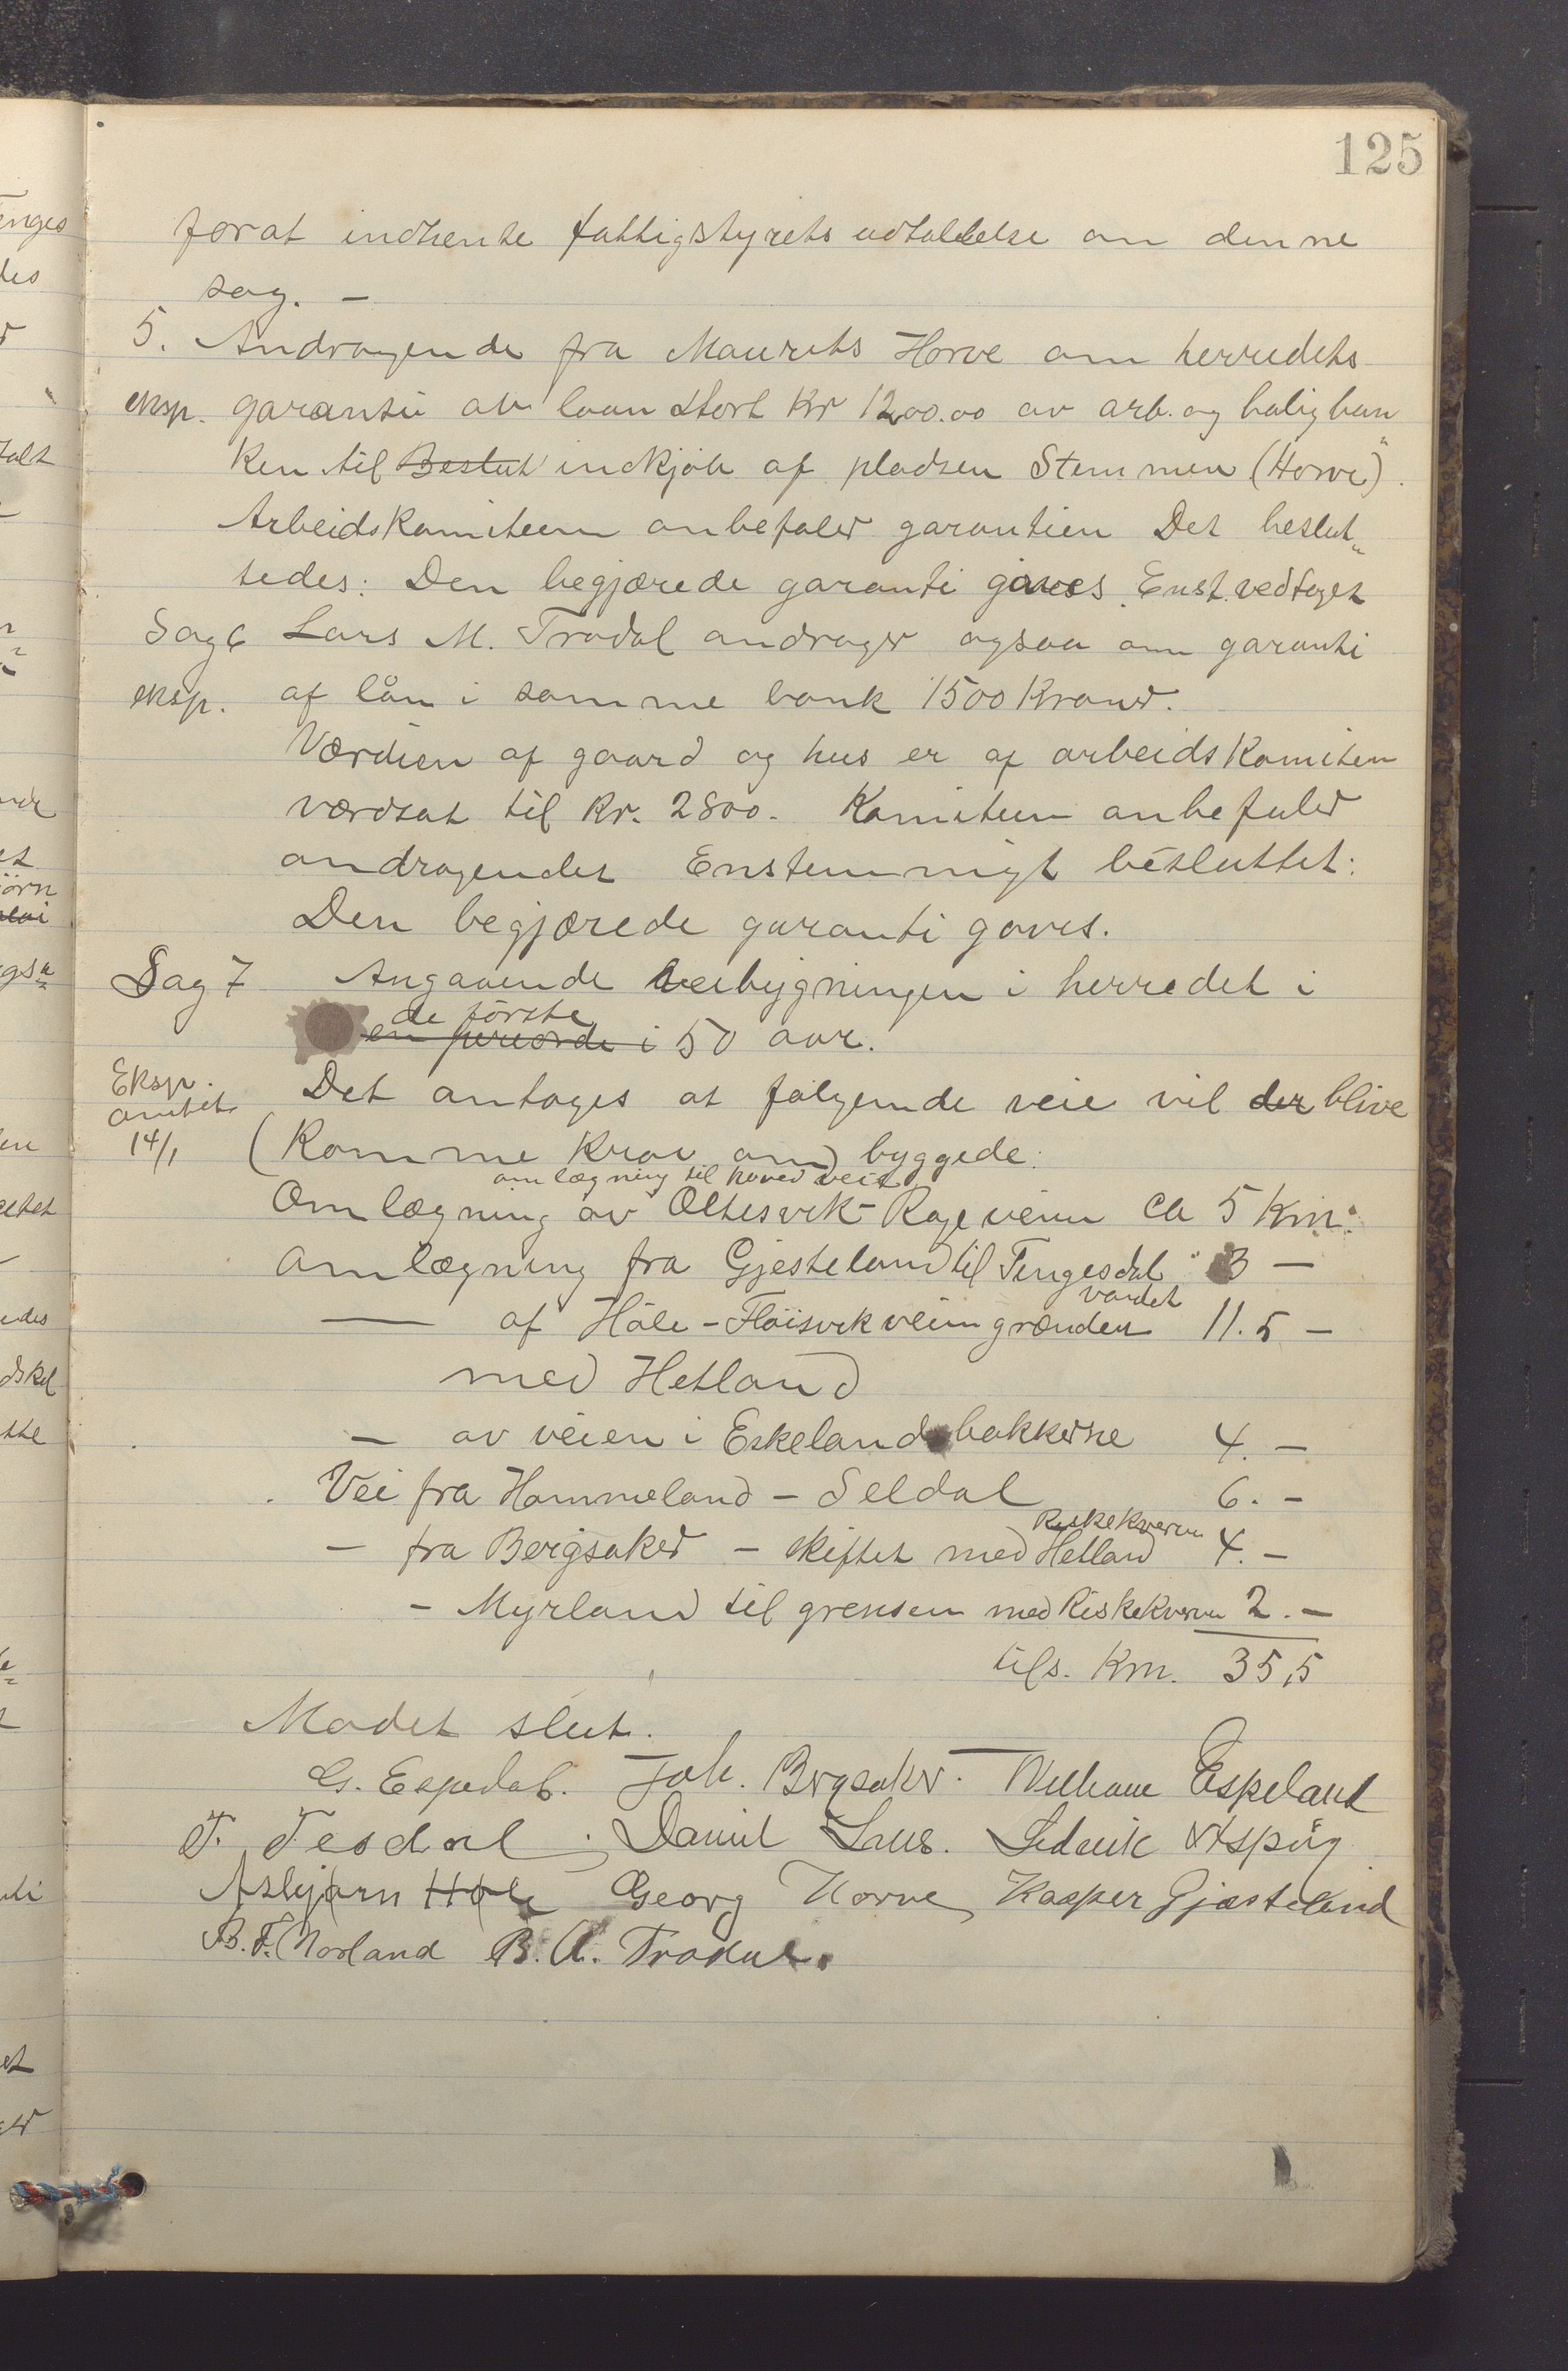 125
forat indhente fattigstyrets udtallelse om denne
sag. –
5. Andragende fra Maurits Horve om herredets
eksp. garanti av laan stort Kr 1200.00 av arb. og boligban„
ken til Beslut indkjøb af pladsen Stemmen (Horve).
Arbeidskomiteen anbefaler garantien Det beslut„
tedes: Den begjærede garanti gives. Enst. vedtaget
Sag 6 Lars M. Tradal andrager ogsaa om garanti
eksp. af lån i samme bank 1500 Kroner.
Værdien af gaard og hus er af arbeidskomiteen
værdsat til Kr. 2800. Komiteen anbefaler
andragendet Enstemmigt besluttet:
Den begjærede garanti gaves.
Sag 7 Angaaende veibygningen i herredet i
de første
en periode i 50 aar.
Eksp. Det antages at følgende veie vil der blive
amtet
14/1 (Komme Krav om) byggede:
omlægning til hovedveie
Omlægning av Oltesvik–Rageveien ca 5 Km.
Omlægning fra Gjesteland til Tengesdal " 3 –
vandet
— af Høle–Fløisvikveien grænden 11.5 –
med Hetland
– av veien i Eskelandsbakkerne 4. –
Vei fra Hommeland – Seldal 6. –
Riskekvern
– fra Bergsaker – skiftet med Hetland 4. –
– Myrland til grensen med Riskekvern 2. –
tils. Km. 35,5
Mødet slut.
G. Espedal. Joh. Bergsaker. Villum Eskeland
T. Tesdal. Daniel Laus. Ludvik Aspøig
Asbjørn Høle Georg Horve Kasper Gjesteland
B. T. Norland B. A. Tradal.